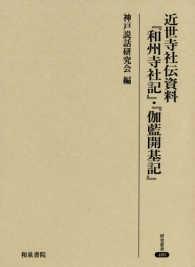 近世寺社伝資料
『和州寺社記』・『伽藍開基記』
神戸説話研究会 編
和泉書院
研究叢書